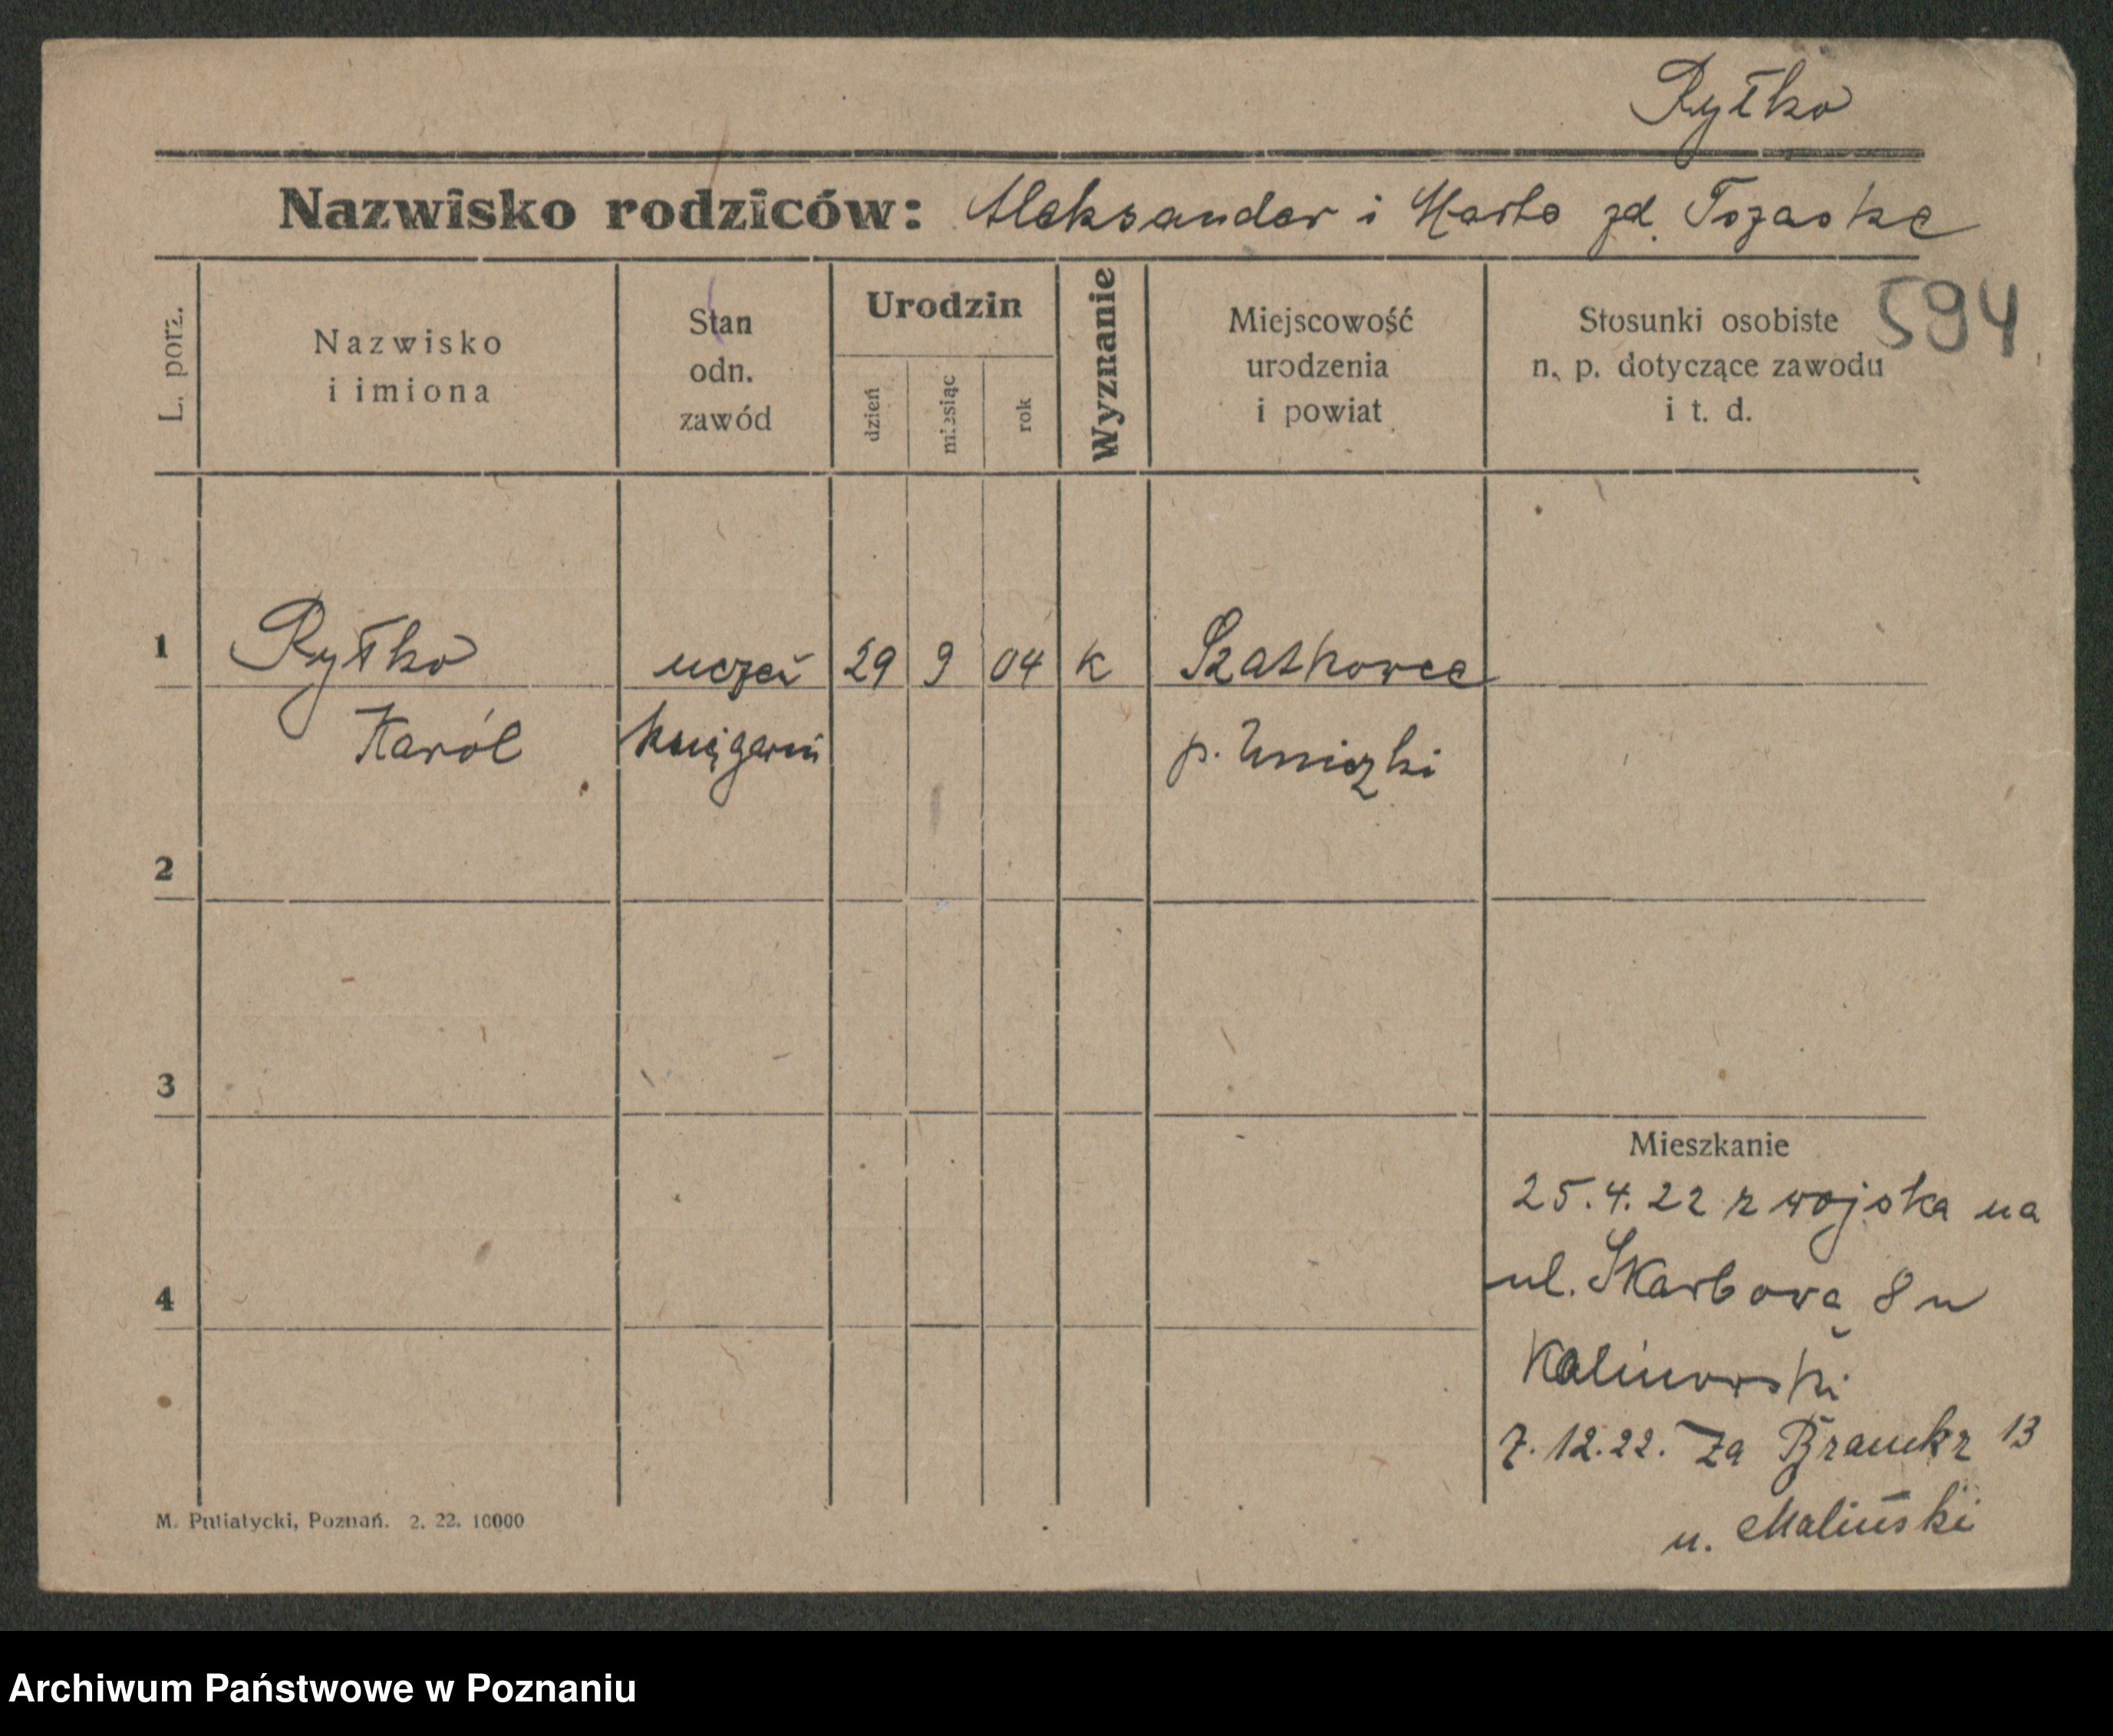 Ryłko
Nazwisko rodziców: Aleksander i Marta zd.
594
L. porz.
Nazwisko
i imiona
Stan
odn.
zawód
Urodzin
dzień
miesiąc
rok
Wyznanie
Miejscowość
urodzenia
i powiat
Stosunki osobiste
n. p. dotyczące zawodu
i t. d.
1 Ryłko uczeń 29 9 04 K
Karól księgarni p.
2
3
4
Mieszkanie
25.4.22 z wojska na
ul. Skarbową 8 u
Kalinowski
7.12.22. Za Bramką 13
u. Maliński
M. Putiatycki, Poznań. 2. 22. 10000
Archiwum Państwowe w Poznaniu